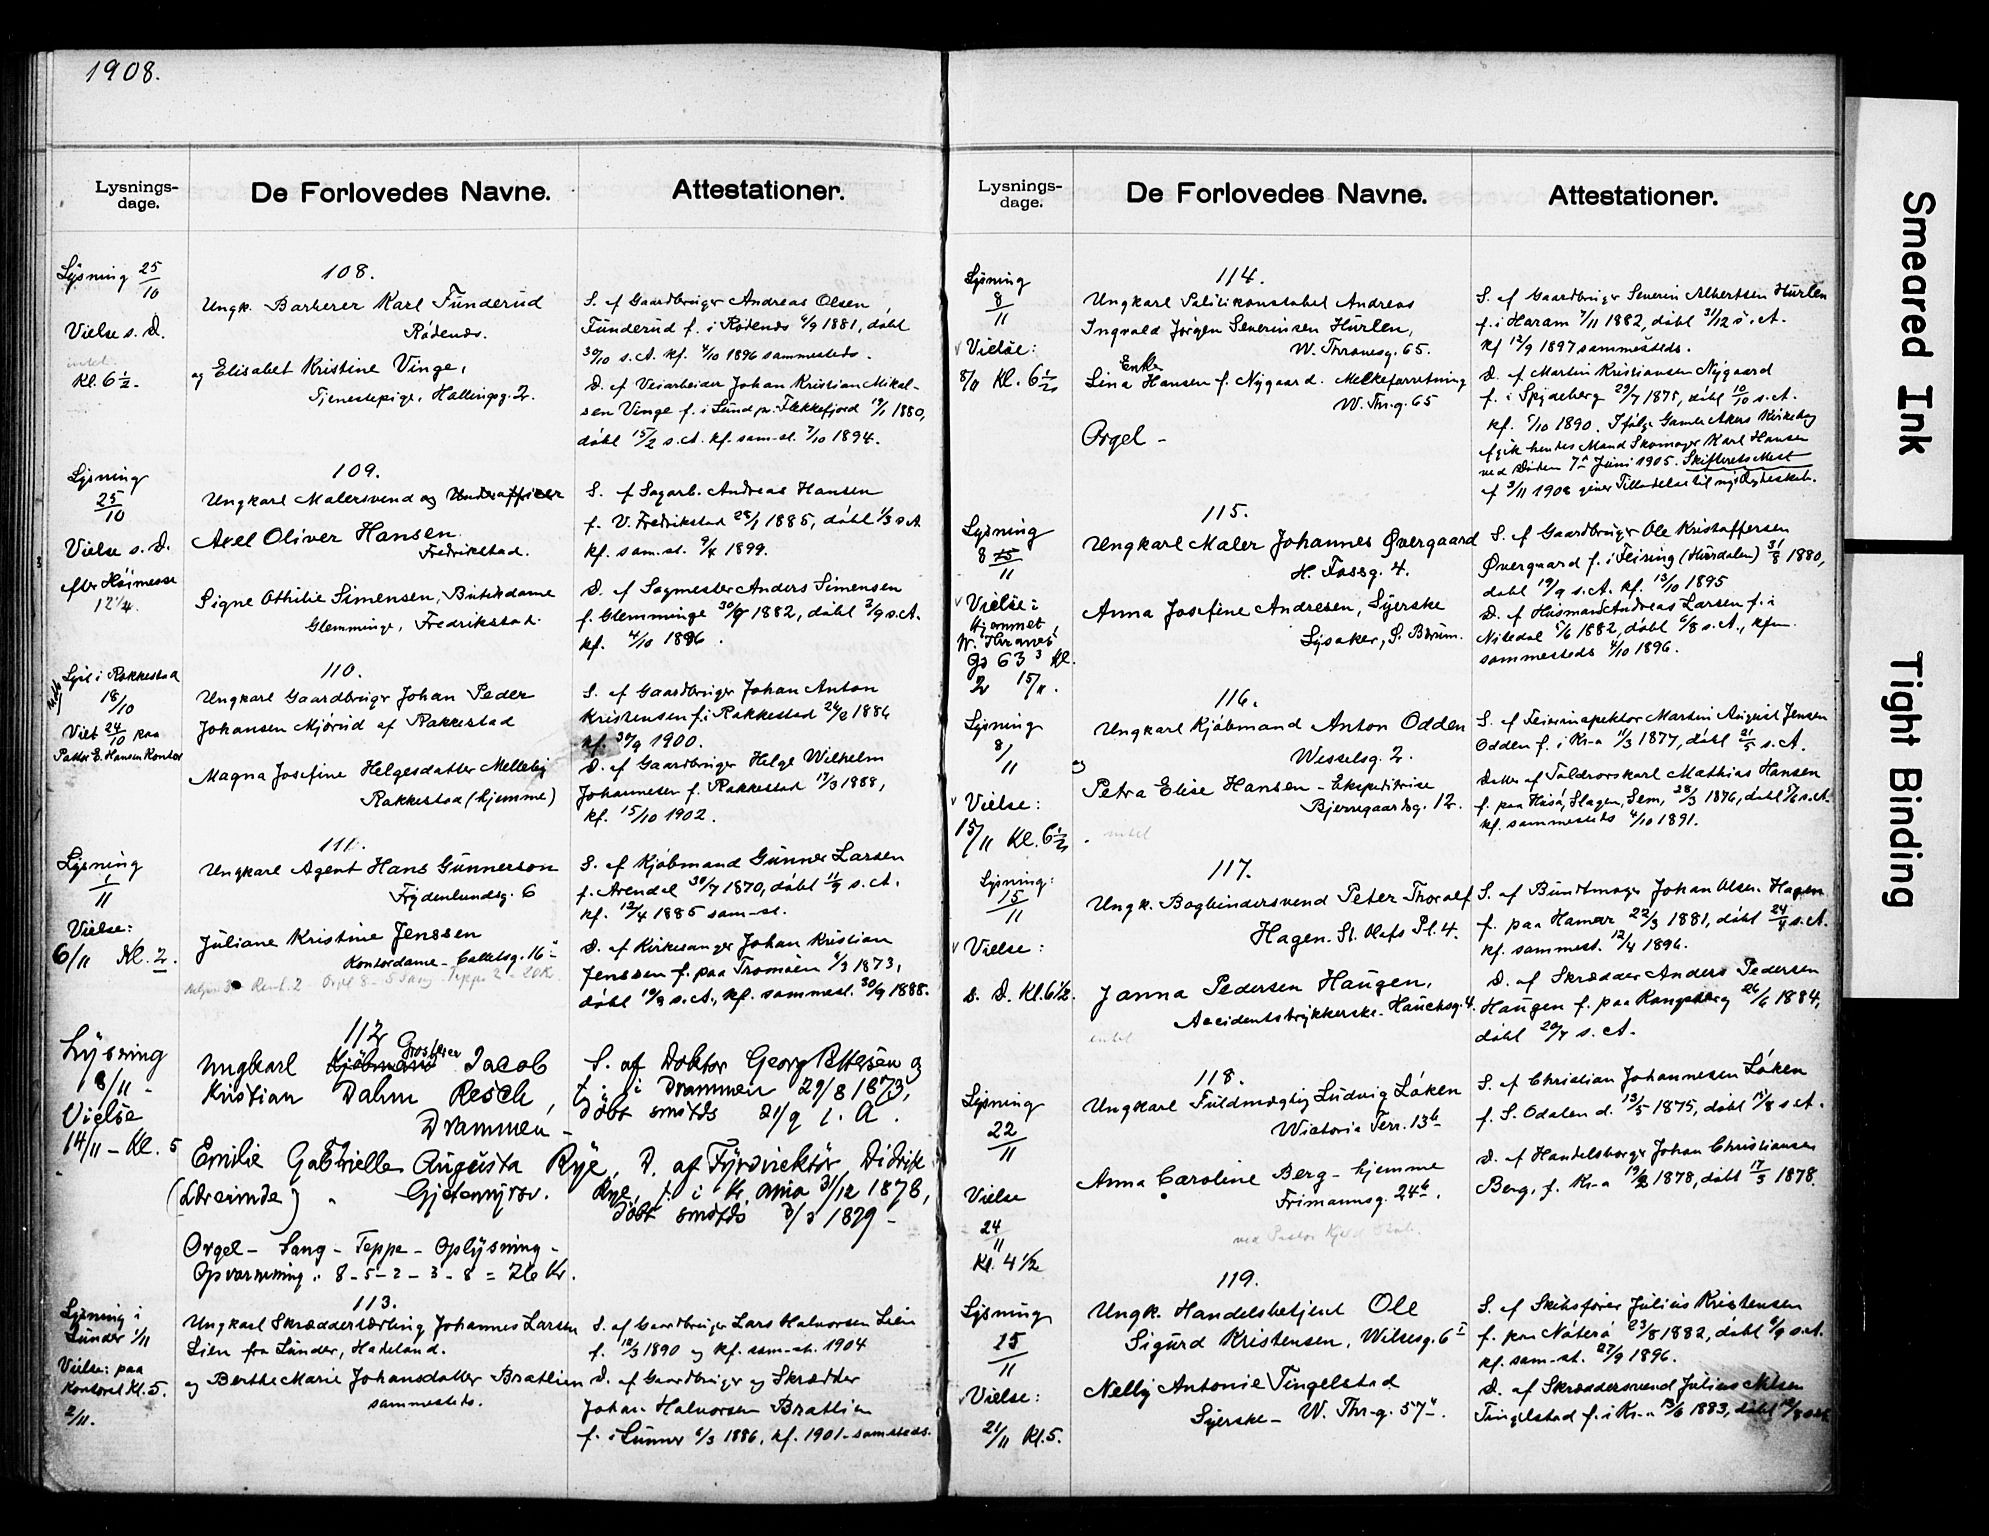 1908.
Lysnings-
dage.
De Forlovedes Navne.
Attestationer.
Lysning 25/10
Vielse s. D.
intet.
Kl. 6 1/2.
108.
Ungk. Barberer Karl Funderud
Rødenæs.
og Elisabet Kristine Vinge,
Tjenestepige. Hallingsg. 2.
S. af Gaardbruger Andreas Olsen
Funderud f. i Rødenæs 6/9 1881, døbt
30/10 s. A. kf. 4/10 1896 sammesteds.
D. af Veiarbeider Johan Kristian Mikal-
sen Vinge f. i Lund pr. Flekkefjord 19/1 1880,
døbt 15/2 s. A. kf. sam-st. 7/10 1894.
Lysning
25/10
Vielse s. D.
efter Høimesse
12 1/4.
109.
Ungkarl Malersvend og Underofficer
Axel Oliver Hansen.
Fredrikstad.
Signe Othilie Simensen, Butikdame
Glemminge, Fredrikstad.
S. af Sagarb. Andreas Hansen
f. V. Fredrikstad 28/1 1885, døbt 1/3 s. A.
kf. sam. st. 9/4 1899.
D. af Sagmester Anders Simensen
f. Glemminge 30/7 1882, døbt 3/9 s. A.
kf. 4/10 1896.
Lyst i Rakkestad
18/10
Viet 24/10 paa
Pastor E. Hansen Kontor
110.
Ungkarl Gaardbruger Johan Peder
Johansen Mjørud af Rakkestad
Magna Josefine Helgesdatter Melleby
Rakkestad (hjemme)
S. af Gaardbruger Johan Anton
Kristensen f. i Rakkestad 26/2 1886
kf. 30/9 1900.
D. af Gaardbruger Helge Wilhelm
Johannesen f. Rakkestad 17/3 1888,
kf. 15/10 1902.
Lysning
1/11
Vielse:
6/11 Kl. 2.
111.
Ungkarl Agent Hans Gunnerson
Frydenlundsg. 6
Juliane Kristine Jenssen
Kontordame - Calletsg. 16
S. af Kjøbmand Gunner Larsen
f. Arendal 30/7 1870, døbt 11/9 s. A.
kf. 12/4 1885 sam-st.
D. af Kirkesanger Johan Kristian
Jenssen f. paa Tromøen 6/3 1873,
døbt 10/3 s. A., kf. sammest. 30/9 1888.
Lysning
8/11 -
Vielse
14/11 - Kl. 5
112
Ungkarl Kjøbmand Grosserer Jacob
Kristian Dahm Resch,
Drammen -
Emilie Gabrielle Augusta Rye,
(Lærerinde) Gjetemyrsv.
Orgel - Sang - Teppe - Oplysning -
Opvarmning: 8 - 5 - 2 - 3 - 8 = 26 Kr.
S. af Doktor Georg Pettersen og
f. i Drammen 29/8 1873,
Døbt smstds 21/9 s. A.
D. af Fyrdirektør Didrik
Rye, f. i Kr.ania 31/12 1878,
døbt smstds 3/3 1879 -
Lysning i
Lunder 1/11
Vielse: paa
Kontoret Kl. 5.
2/11.
113.
Ungkarl Skrædderlærling Johannes Larsen
Lien fra Lunder, Hadeland.
og Berthe Marie Johansdatter Bratlien
sammesteds.
S. af Gaardbruger Lars Halvorsen Lien
f. 12/3 1890 og kf. sam-st. 1904
D. af Gaardbruger og Skrædder
Johan Halvorsen Bratlien
f. i Lunner 6/3 1886, kf. 1901 - samsteds.
Lysnings-
dage.
De Forlovedes Navne.
Attestationer.
Lysning
8/11
Vielse:
8/11 Kl. 6 1/2
114.
Ungkarl Politikonstabel Andreas
Ingvald Jørgen Severinsen Hurlen,
W. Thranesg. 65.
Enke
Lina Hansen f. Nygaard. Melkeforretning
W. Thr.g. 65
Orgel -
S. af Gaardbruger Severin Albertsen Hurlen
f. i Haram 7/11 1882, døbt 31/12 s. A.
kf 12/9 1897 sammesteds.
D. af Martin Kristiansen Nygaard
f. i Spydeberg 29/7 1875, døbt 10/10 s. A.
kf. 5/10 1890. Ifølge Gamle Akers Kirkebog
afgik hendes Mand Skomager Karl Hansen
ved Døden 7de Juni 1905. Skifterets Attest
af 3/11 1908 giver Tilladelse til nyt Ægteskab.
Lysning
8 15/11
Vielse:
Hjemmet,
W. Thranes
Gd 63 3 Kl.
2 15/11.
115.
Ungkarl Maler Johannes Øvergaard
H. Fossg. 4.
Anna Josefine Andresen, Syerske
Lysaker, S. Bærum.
S. af Gaardbruger Ole Kristoffersen
Øvergaard f. i Feiring (Hurdalen) 31/8 1880,
døbt 19/9 s. A. kf. 13/10 1895
D. af Husmand Andreas Larsen f. i
Nitedal 5/6 1882, døbt 6/8 s. A., kf.
sammesteds 4/10 1896.
Lysning
8/11
Vielse:
15/11 Kl. 6 1/2
116.
Ungkarl Kjøbmand Anton Odden
Wesselsg. 2.
og
Petra Elise Hansen - Ekspeditrise
Bjerregaardsg. 12.
intet
S. af Feierinspektør Martin August Jensen
Odden f. i Kr-a 11/3 1877, døbt 21/5 s. A.
Datter af Toldrorskarl Mathias Hansen
f. paa Husø, Slagen, Sem, 28/3 1876, døbt s. A.
kf. sammesteds 4/10 1891.
Lysning:
15/11
Vielse:
s. D. Kl. 6 1/2.
117.
Ungk. Bogbindersvend Peter Thoralf
Hagen. St. Olafs Pl. 4.
Janna Pedersen Haugen,
Accidentstrykkerske. Hauchsg. 4.
intet
S. af Bundtmager Johan Olsen Hagen
f. paa Hamar 22/3 1881, døbt 24/4 s. A.
kf. sammest. 12/4 1896.
D. af Skrædder Anders Pedersen
Haugen f. paa Kongsberg 26/6 1884,
døbt 20/7 s. A.
Lysning
22/11
Vielse
24/11
Kl. 4 1/2
118.
Ungkarl Fuldmægtig Ludvig Løken
Victoria Terr. 13
Anna Caroline Berg - hjemme
Frimannsg. 24.
S. af Christian Johannesen Løken
f. S. Odalen d. 13/5 1875, døbt 15/8 s. A.
D. af Handelsborger Johan Christiansen
Berg, f. Kr-a 19/2 1878, døbt 17/3 1878.
Lysning
15/11
Vielse:
21/11 Kl. 5.
119.
Ungk. Handelsbetjent Ole
Sigurd Kristensen, Wilsesg. 6
Nelly Antonie Tingelstad
Syerske - W. Thr-g. 57.
S. af Skibsfører Julius Kristensen
f. paa Nøterø 23/8 1882, døbt 6/9 s. A.
kf. sam-st. 27/9 1896.
D. af Skræddersvend Julius Nilsen
Tingelstad f. i Kr-a 13/6 1883, døbt 12/8
Smeared Ink
Tight Binding